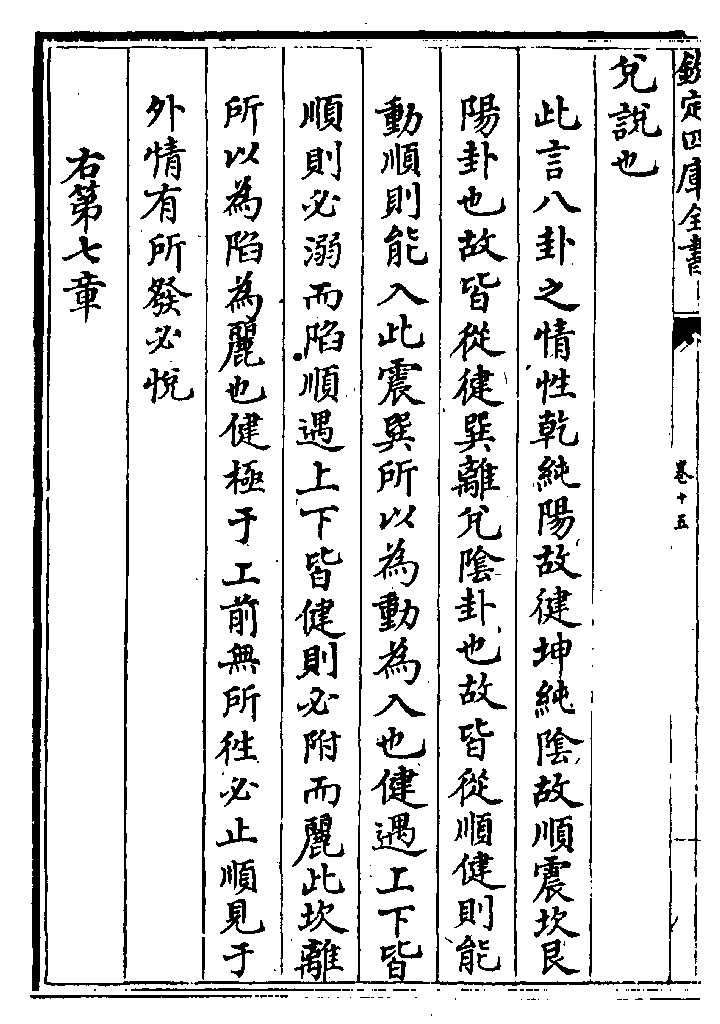 欽定四庫全書
卷十五
兌說也
此言八卦之情性乾純陽故健坤純陰故順震坎艮
陽卦也故皆從健巽離兌陰卦也故皆從順健則能
動順則能入此震巽所以為動為入也健遇上下皆
順則必溺而陷順遇上下皆健則必附而麗此坎離
所以為陷為麗也健極于上前無所徃必止順見于
外情有所發必悅
右第七章